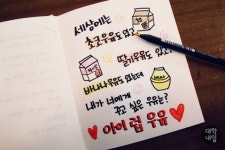 세상에는
초코우유도 있고
딸기우유도 있고
바나나우유도 있고
내가 너에게
주고 싶은 우유는?
아이 럽 우유
대학
내일